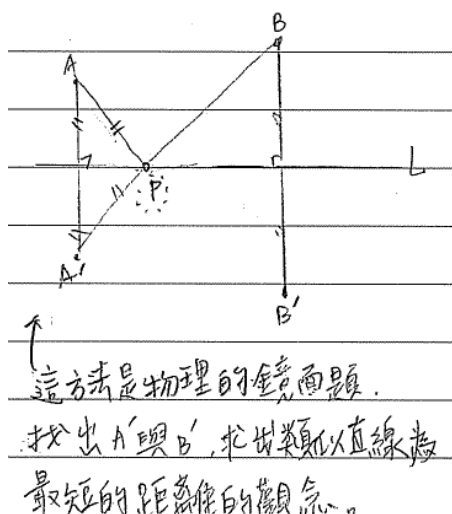 B
A
P
L
A'
B'
這方法是物理的鏡面題.
找出A'與B',求出類似直線為
最短的距離的觀念。